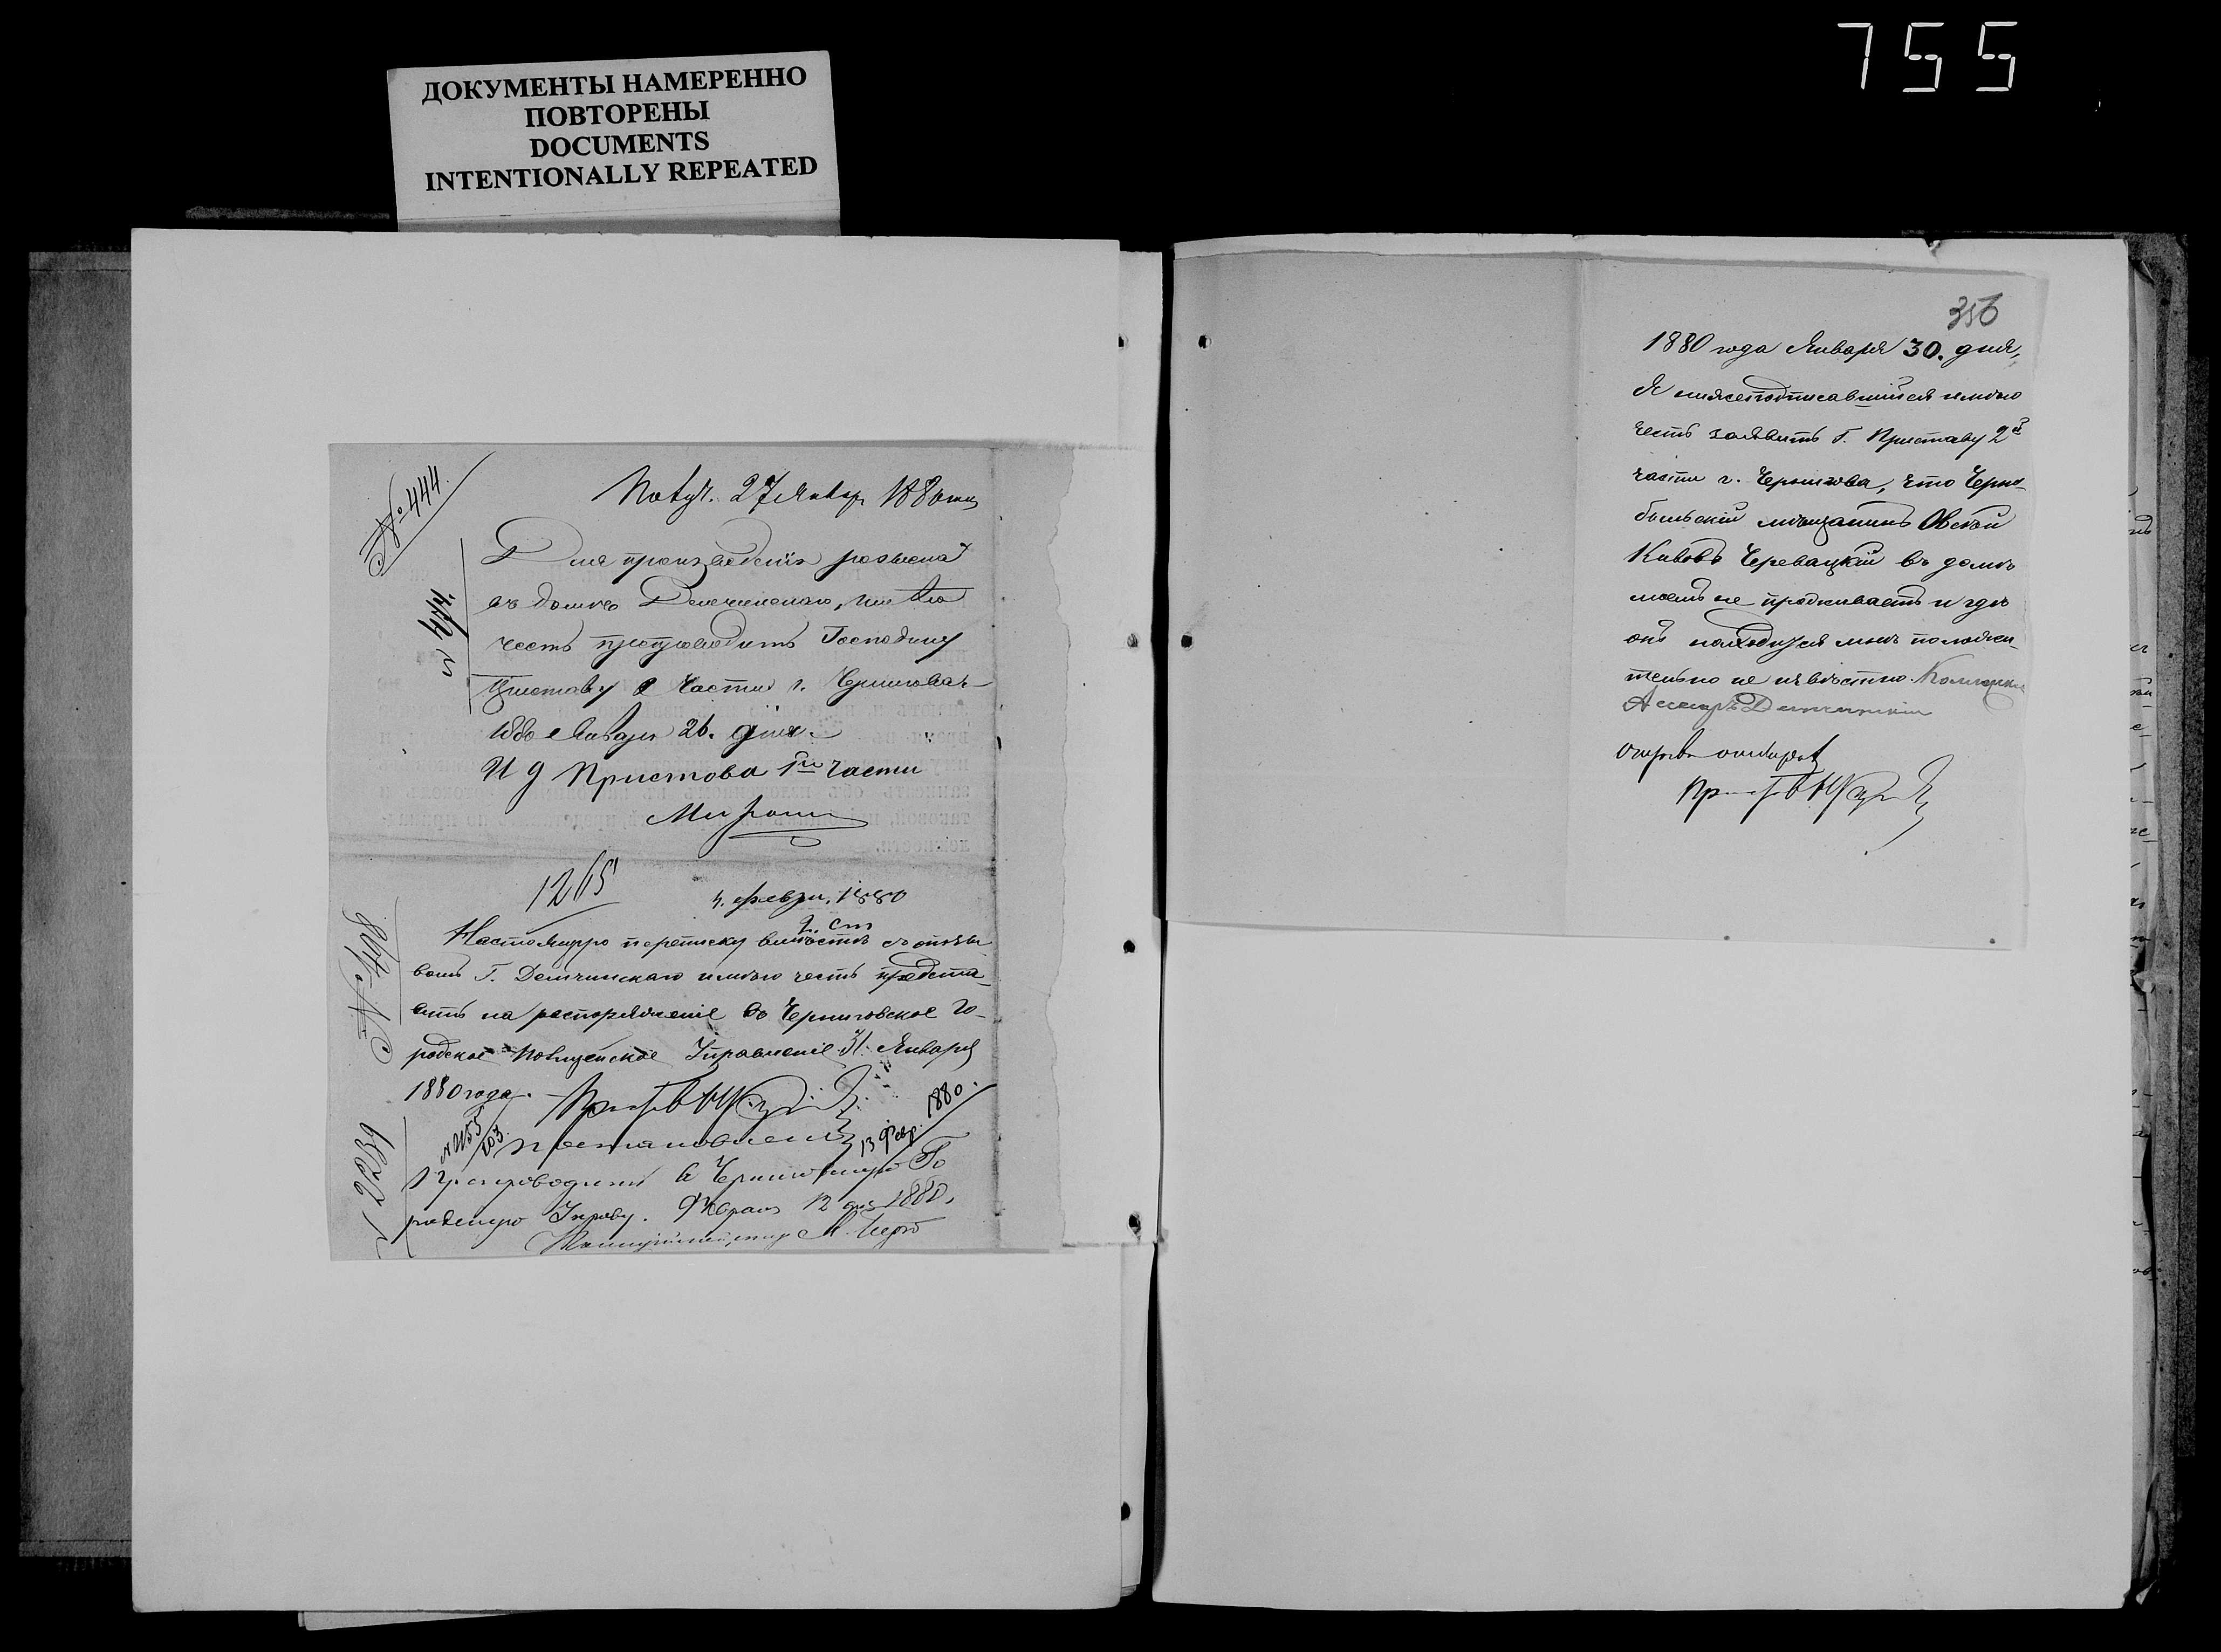 755
ДОКУМЕНТЫ НАМЕРЕННО
ПОВТОРЕНЫ
DOCUMENTS
INTENTIONALLY REPEATED
№ 444.
Получ. 27 Январ 1880
Для произведенія розыска
въ домѣ Демчинскаго, имѣю
честь препроводить Господину
Приставу 2 части г. Чернигова
1880 Января 26. дня.
И д Пристова 1й части
№ 444.
1265
4. февр. 1880
Настоящую переписку вмѣстѣ съ отзы
вомъ Г. Демчинскаго имѣю честь предста-
вить на распоряженіе въ Черниговское Го-
родское Полицейское Управленіе 31. Января
1880 года.
№ 498
№ 2155
103
13 Февр. 1880.
Препроводить въ Черниговскую Го
родскую Управу. Февраля 12 дня 1880.
№ 2239
356
1880 года Января 30. дня,
Я нижеподписавшійся имѣю
честь заявить Г. Приставу 2й
части г. Чернигова, что Черно-
быльскій мѣщанинъ Овсей
Кивовъ Черевацкій въ домѣ
моемъ не проживаетъ и гдѣ
онъ находится мнѣ положи-
тельно не извѣстно. Коллежск
Асесоръ Демчинскій
Отзывъ отобралъ